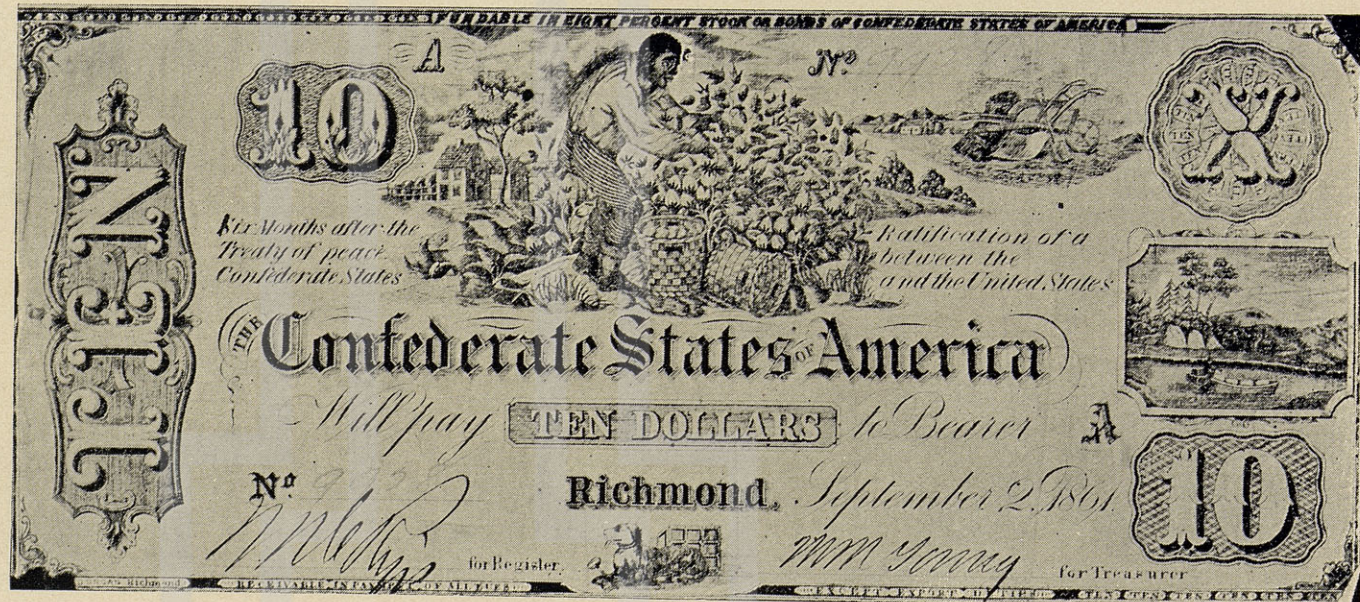 FUNDABLE IN EIGHT PERCENT STOCK OR BONDS OF CONFEDERATE STATES OF AMERICA
A
No
10
X
TEN
Six Months after the Ratification of a
Treaty of peace between the
Confederate States and the United States
THE Confederate States OF America
Will pay TEN DOLLARS to Bearer
A
No
Richmond, September 2, 1861
10
for Register
for Treasurer
Richmond
RECEIVABLE IN PAYMENT OF ALL DUES
EXCEPT EXPORT DUTIES
TEN TEN TEN TEN TEN TEN